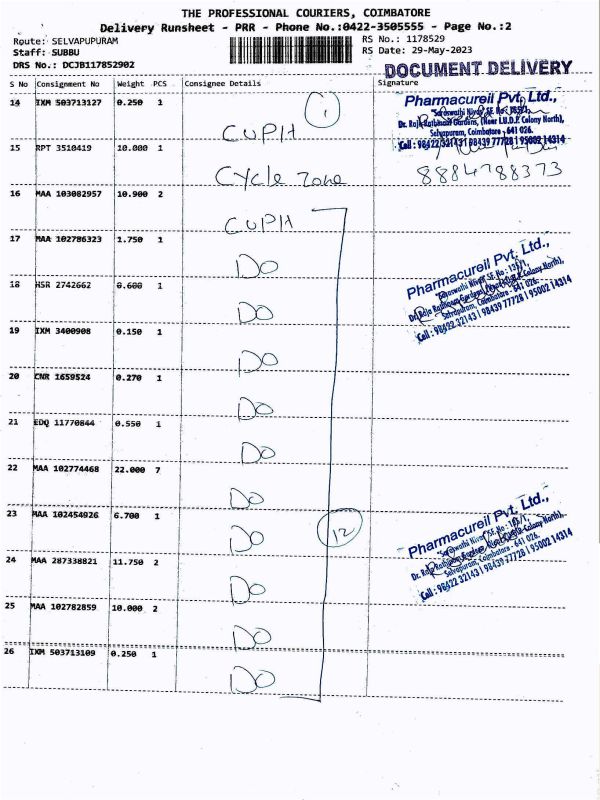 THE PROFESSIONAL COURIERS, COIMBATORE
Delivery Runsheet - PRR - Phone No.:0422-3505555 - Page No.:2
Route: SELVAPUPURAM
RS No.: 1178529
Staff: SUBBU
RS Date: 29-May-2023
DRS No.: DCJB117852902
DOCUMENT DELIVERY
S No Consignment No Weight PCS Consignee Details Signature
14 IXM 503713127 0.250 1 CUPH 1
Pharmacureil Pvt. Ltd.,
Dr. Raja Rathinam Gardens, (Near I.U.D.P. Colony North),
Selvapuram, Coimbatore - 641 026.
Cell : 98422 32143 | 98439 77728 | 95002 14314
15 RPT 3510419 10.000 1 Cycle Zone 8884788373
16 MAA 103082957 10.900 2 CUPH
17 MAA 102786323 1.750 1 DO
Pharmacureil Pvt. Ltd.,
18 HSR 2742662 0.600 1 DO
Selvapuram, Coimbatore - 641 026.
Cell : 98422 32143 | 98439 77728 | 95002 14314
19 IXM 3400908 0.150 1 DO
20 CNR 1659524 0.270 1 DO
21 EDQ 11770844 0.550 1 DO
22 MAA 102774468 22.000 7 DO
23 MAA 102454926 6.700 1 DO 12
Pharmacureil Pvt. Ltd.,
Selvapuram, Coimbatore - 641 026.
Cell : 98422 32143 | 98439 77728 | 95002 14314
24 MAA 287338821 11.750 2 DO
25 MAA 102782859 10.000 2 DO
26 IXM 503713109 0.250 1 DO